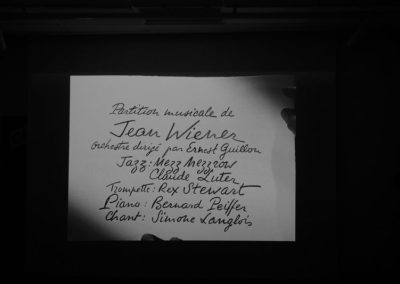 Partition musicale de
Jean Wiener
Orchestre dirigé par Ernest Guillon
Jazz: Mezz Mezzrow
Claude Luter
Trompette: Rex Stewart
Piano: Bernard Peiffer
Chant: Simone Langlois